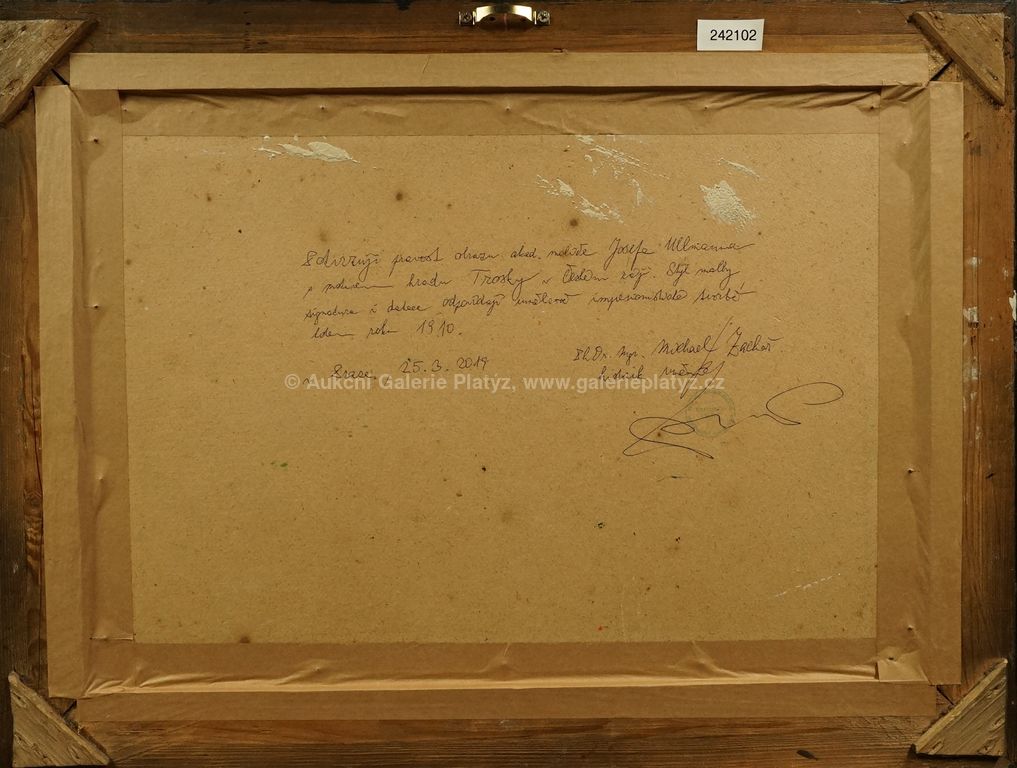 242102
Potvrzuji pravost obrazu akad. malíře Josefa Ullmanna
s motivem hradu Trosky v Českém ráji. Styl malby
signatura i datace odpovídají umělcově impresionistické tvorbě
kolem roku 1910.
v Praze, 25.3.2019
PhDr. Mgr. Michael Zachař
historik umění
© Aukcni Galerie Platýz, www.galerieplatyz.cz